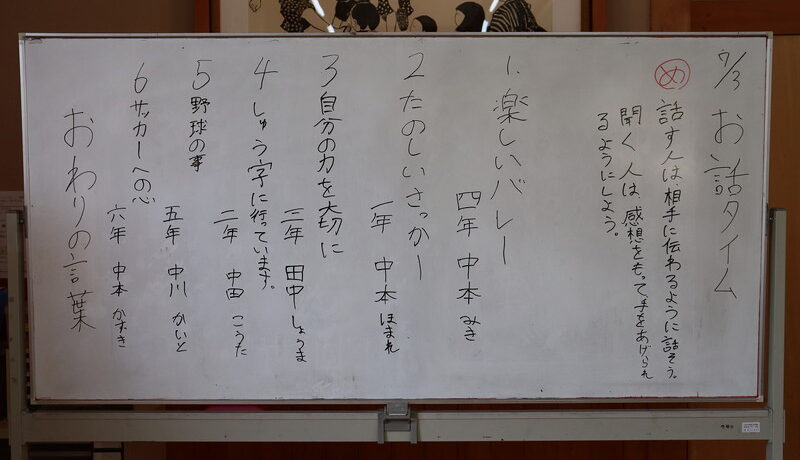 7/3 お話タイム
め 話す人は、相手に伝わるように話そう。
聞く人は、感想をもって、手をあげられ
るようにしよう。
1. 楽しいバレー
四年 中本 みき
2 たのしいさっかー
一年 中本 ほまれ
3 自分の力を大切に
三年 田中 しょうま
4 しゅう字に行っています。
二年 中田 こうた
5 野球の事
五年 中川 かいと
6 サッカーへの心
六年 中本 かずき
おわりの言葉